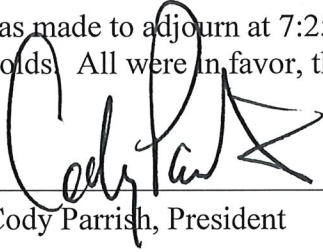 as made to adjourn at 7:2
olds. All were in favor, th
Cody Par
Cody Parrish, President